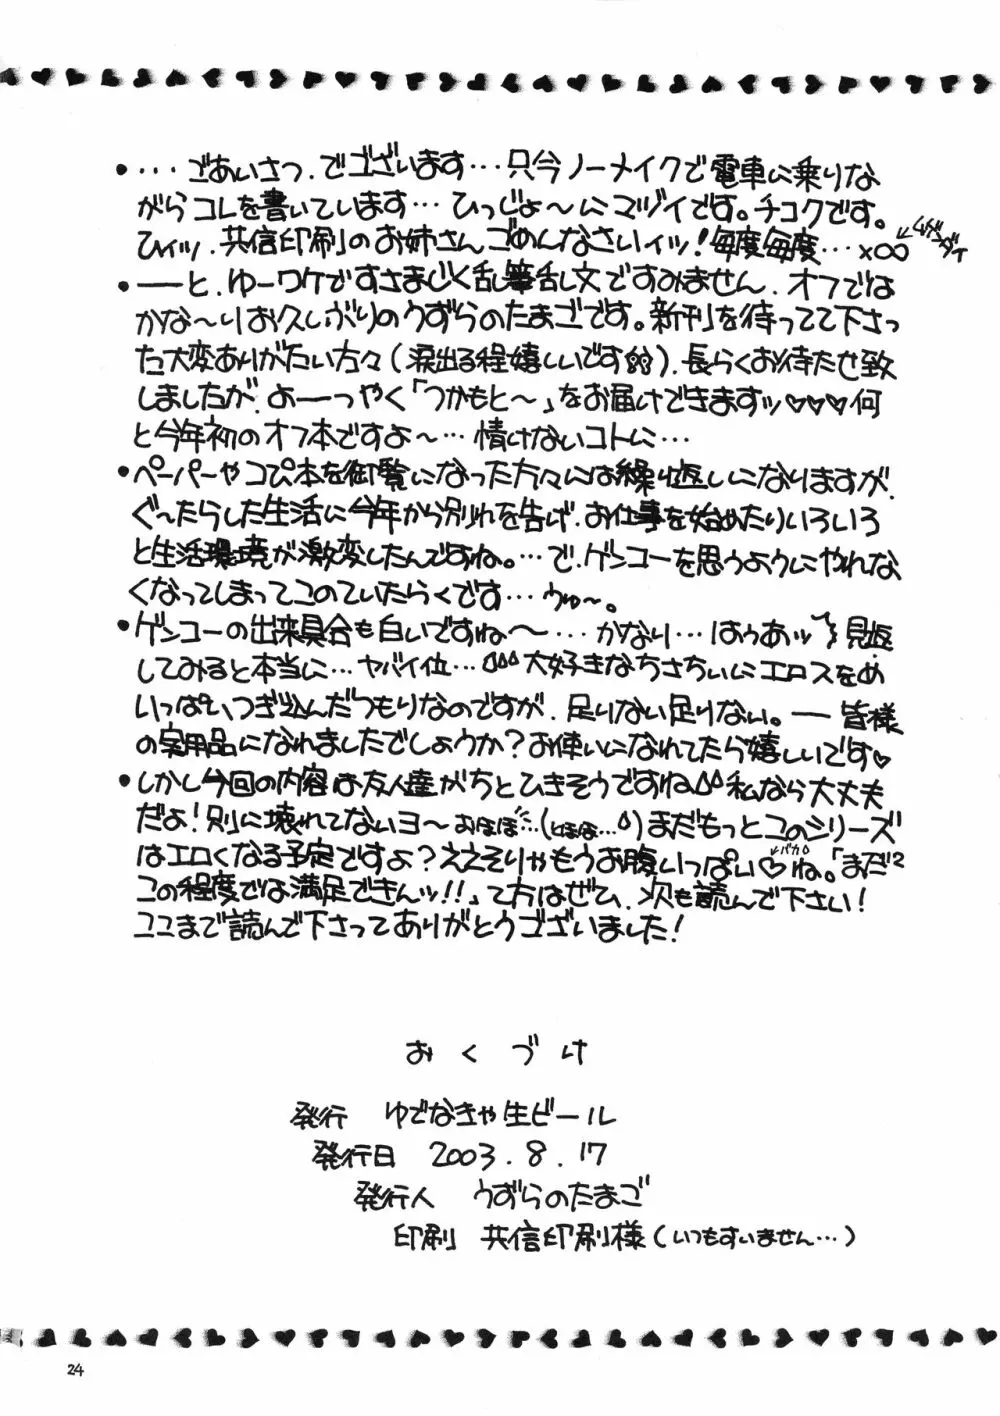 ・・・・ごあいさつ、でゴざいます…只今ノーメイクで電車に乗りな
がらコレを書いています… ひっじょ〜にマヅイです。チコクです。
ひィッ、共信印刷のお姉さんゴめんなさいィッ!毎度毎度…×∞
ムゲンダイ
・――と、ゆーワケですさまじく乱筆乱文ですみません、オフでは
かな〜りお久しぶりのうずらのたまごです。新刊を待ってて下さっ
た大変ありがたい方々(涙出る程嬉しいです)、長らくお待たせ致
しましたが、よーーっやく「つかもと〜」をお届けできますッ♡♡♡何
と今年初のオフ本ですよ〜… 情けないコトに…
・ペーパーやコぴ本を御覧になった方々には繰り返しになりますが、
ぐ〜たらした生活に今年から別れを告げ、お仕事を始めたりいろいろ
と生活環境が激変したんですね。…で、ゲンコーを思うようにやれな
くなってしまってこのていたらくです… ウゥ〜。
・ゲンコーの出来具合も白いですね〜…かなり…はうあッ 見返
してみると本当に…ヤバイ位… 大好きなちさちぃにエロスをめ
いっぱいつぎ込んだつもりなのですが、足りない足りない。― 皆様
の実用品になれましたでしょうか?お使いになれてたら嬉しいです♡
・しかし今回の内容は友人達がちとひきそうですね 私なら大丈夫
だよ!別に壊れてないヨ〜おほほ…(とほほ…)まだもっとコのシリーズ
はエロくなる予定ですよ?ええそりゃもうお腹いっぱい♡ね。「まだ2
バカ
この程度では満足できんッ!!」て方はぜひ、次も読んで下さい!
ココまで読んで下さってありがとうゴざいました!
おくづけ
発行 ゆでなきゃ生ビール
発行日 2003.8.17
発行人 うずらのたまご
印刷 共信印刷様(いつもすいません…)
24